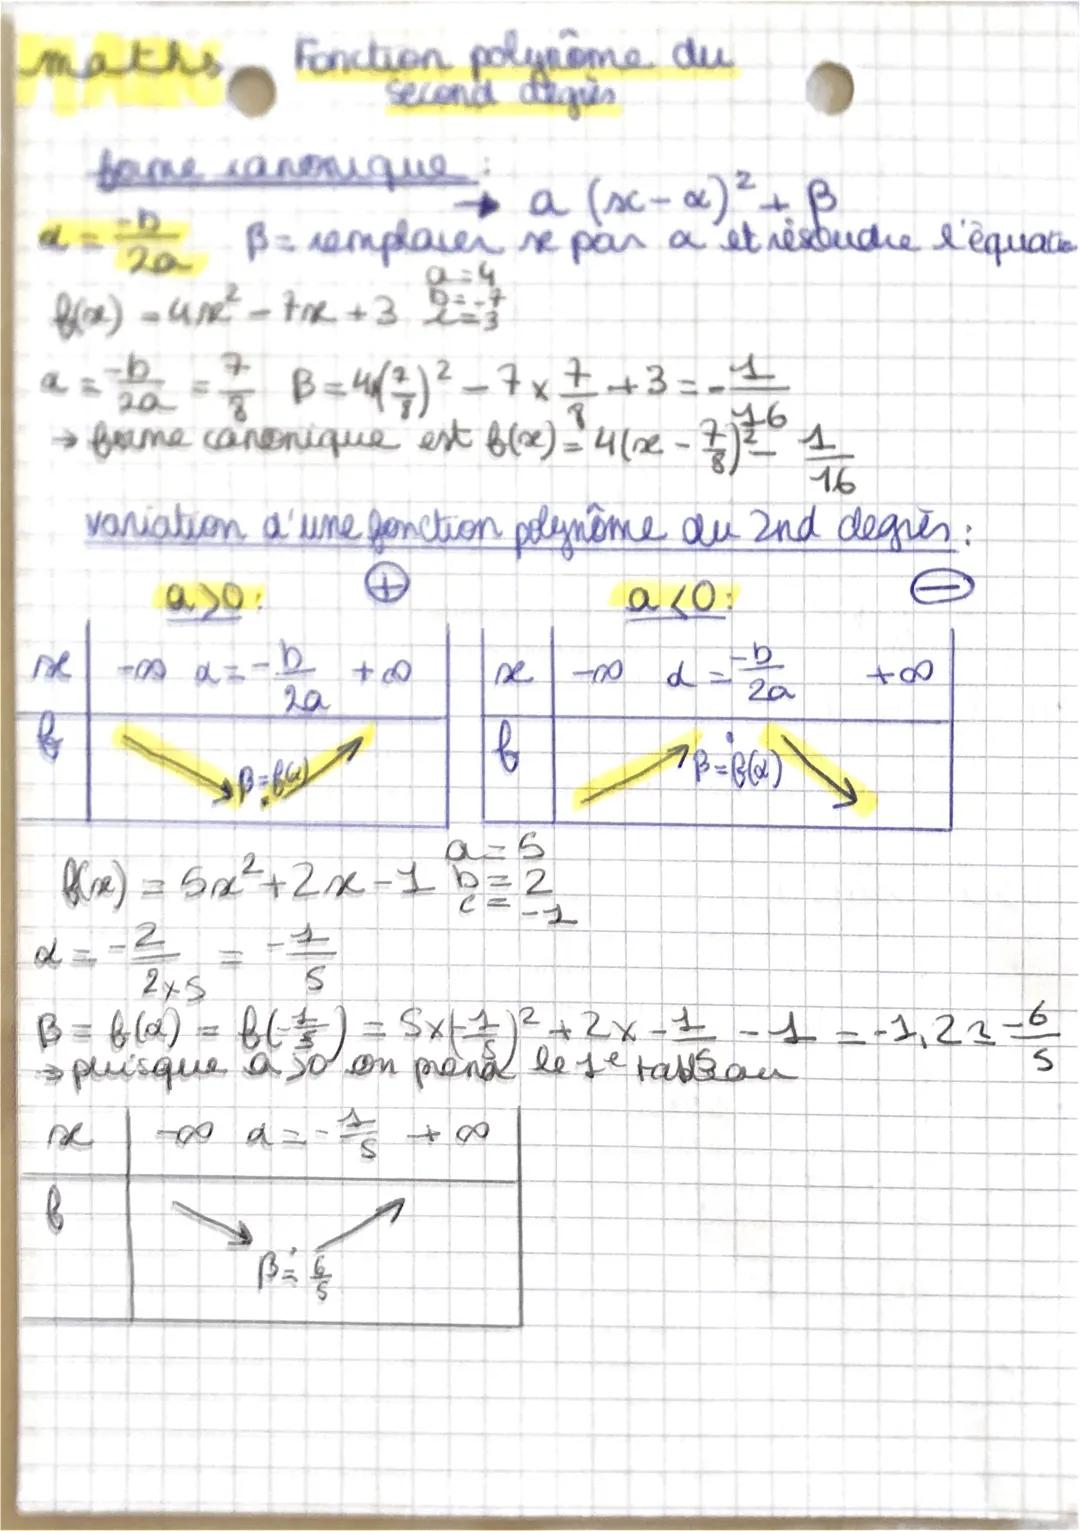 maths
Fonction polynôme du
second degrès
forme canonique :
→ a (x - α)² + β
α = -b/2a   β = remplacer x par α et résoudre l'équatio
f(x) = 4x² - 7x + 3
a = 4
b = -7
c = 3
α = -b/2a = 7/8   β = 4×(7/8)² - 7 × 7/8 + 3 = - 1/16
→ forme canonique est f(x) = 4(x - 7/8)² - 1/16
variation d'une fonction polynôme du 2nd degrès :
a>0:   +   a<0:   −
x   -∞   α = -b/2a   +∞
f   β = f(α)
x   -∞   α = -b/2a   +∞
f   β = f(α)
f(x) = 5x² + 2x - 1
a = 5
b = 2
c = -1
α = -2/2×5 = -1/5
β = f(α) = f(-1/5) = 5×(-1/5)² + 2× -1/5 - 1 = -1,2 = -6/5
→ puisque a>0 on prend le 1e tableau
x   -∞   α = -1/5   +∞
f   β = 6/5